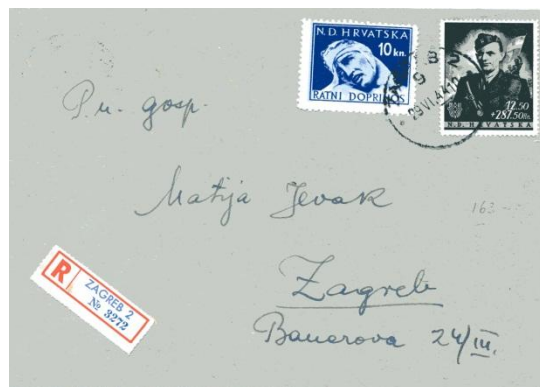 N.D. HRVATSKA
10 kn.
RATNI DOPRINOS
12.50
+287.50 Kn.
N.D. HRVATSKA
B 2
9
29.VI.44.10
P.n. gosp.
Matija Jevak
163
Zagreb
Bauerova 24/III.
R
ZAGREB 2
No 3272